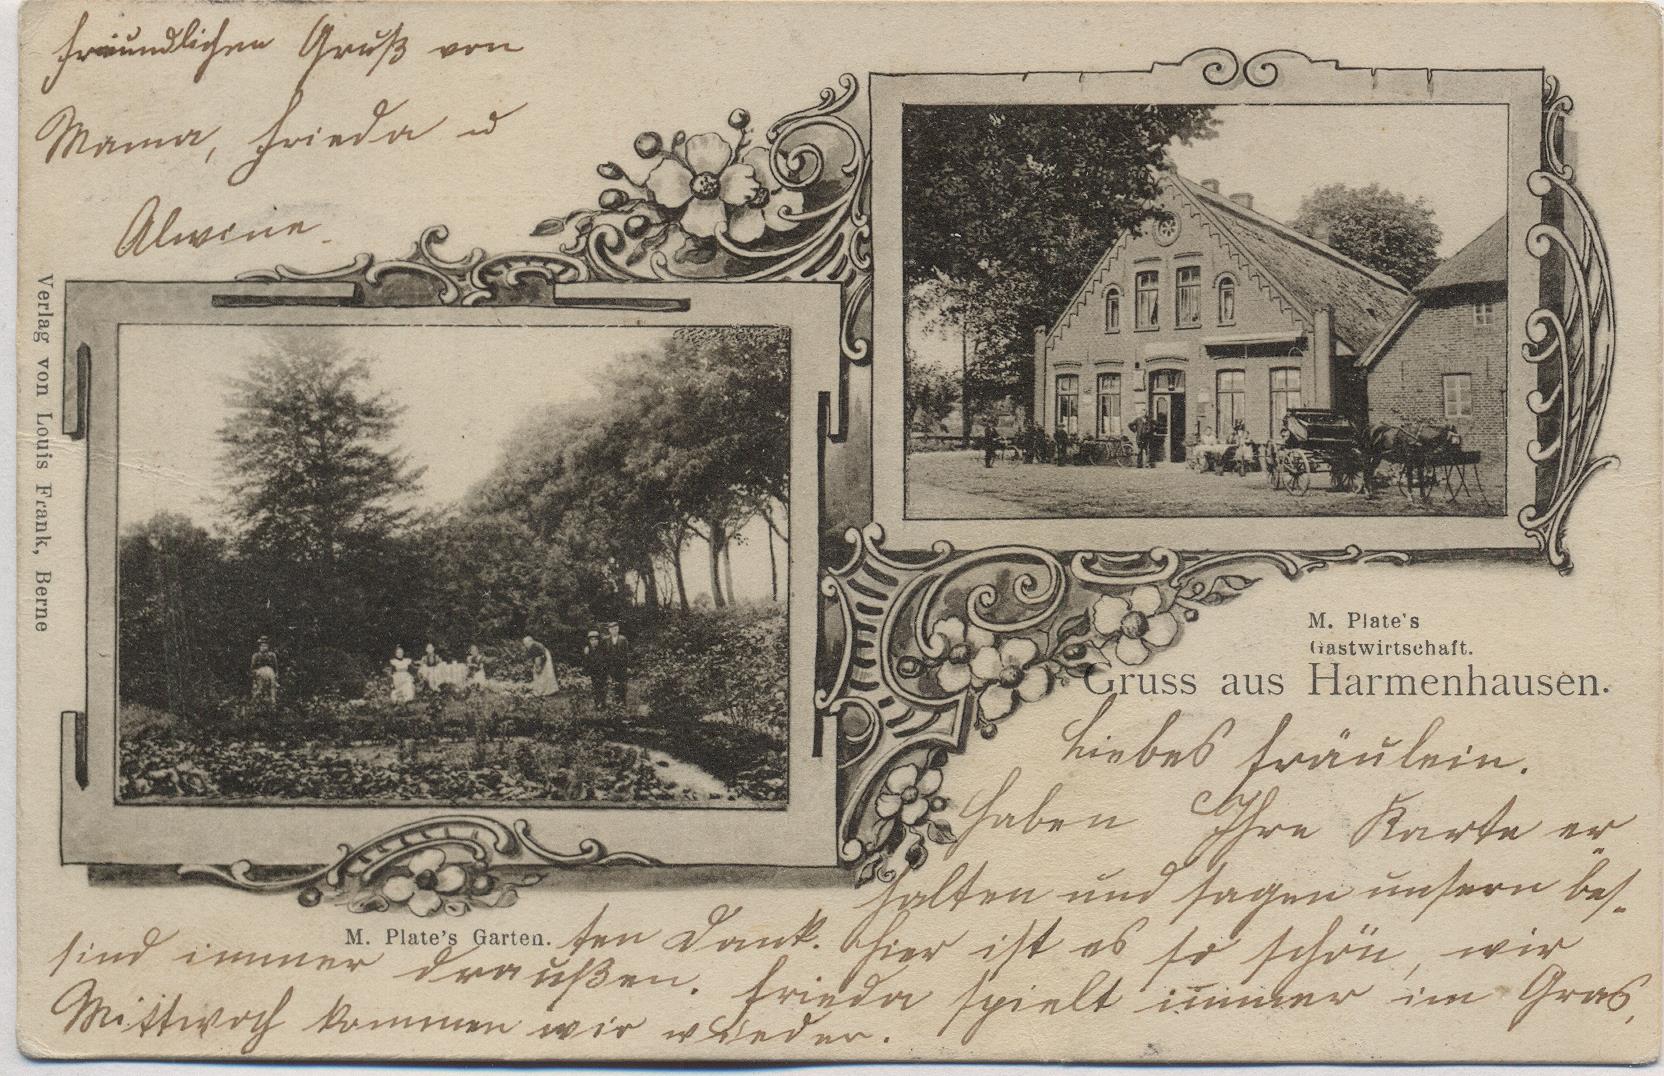 freundlichen Gruß von
Mama, Frieda u
Alwine.
Verlag von Louis Frank, Berne
M. Plate's
Gastwirtschaft.
Gruss aus Harmenhausen.
Liebes Fräulein.
Haben Ihre Karte er
halten und sagen unsern bes-
M. Plate's Garten.
ten Dank. Hier ist es so schön, wir
sind immer draußen. Frieda spielt immer im Gras,
Mittwoch kommen wir wieder.